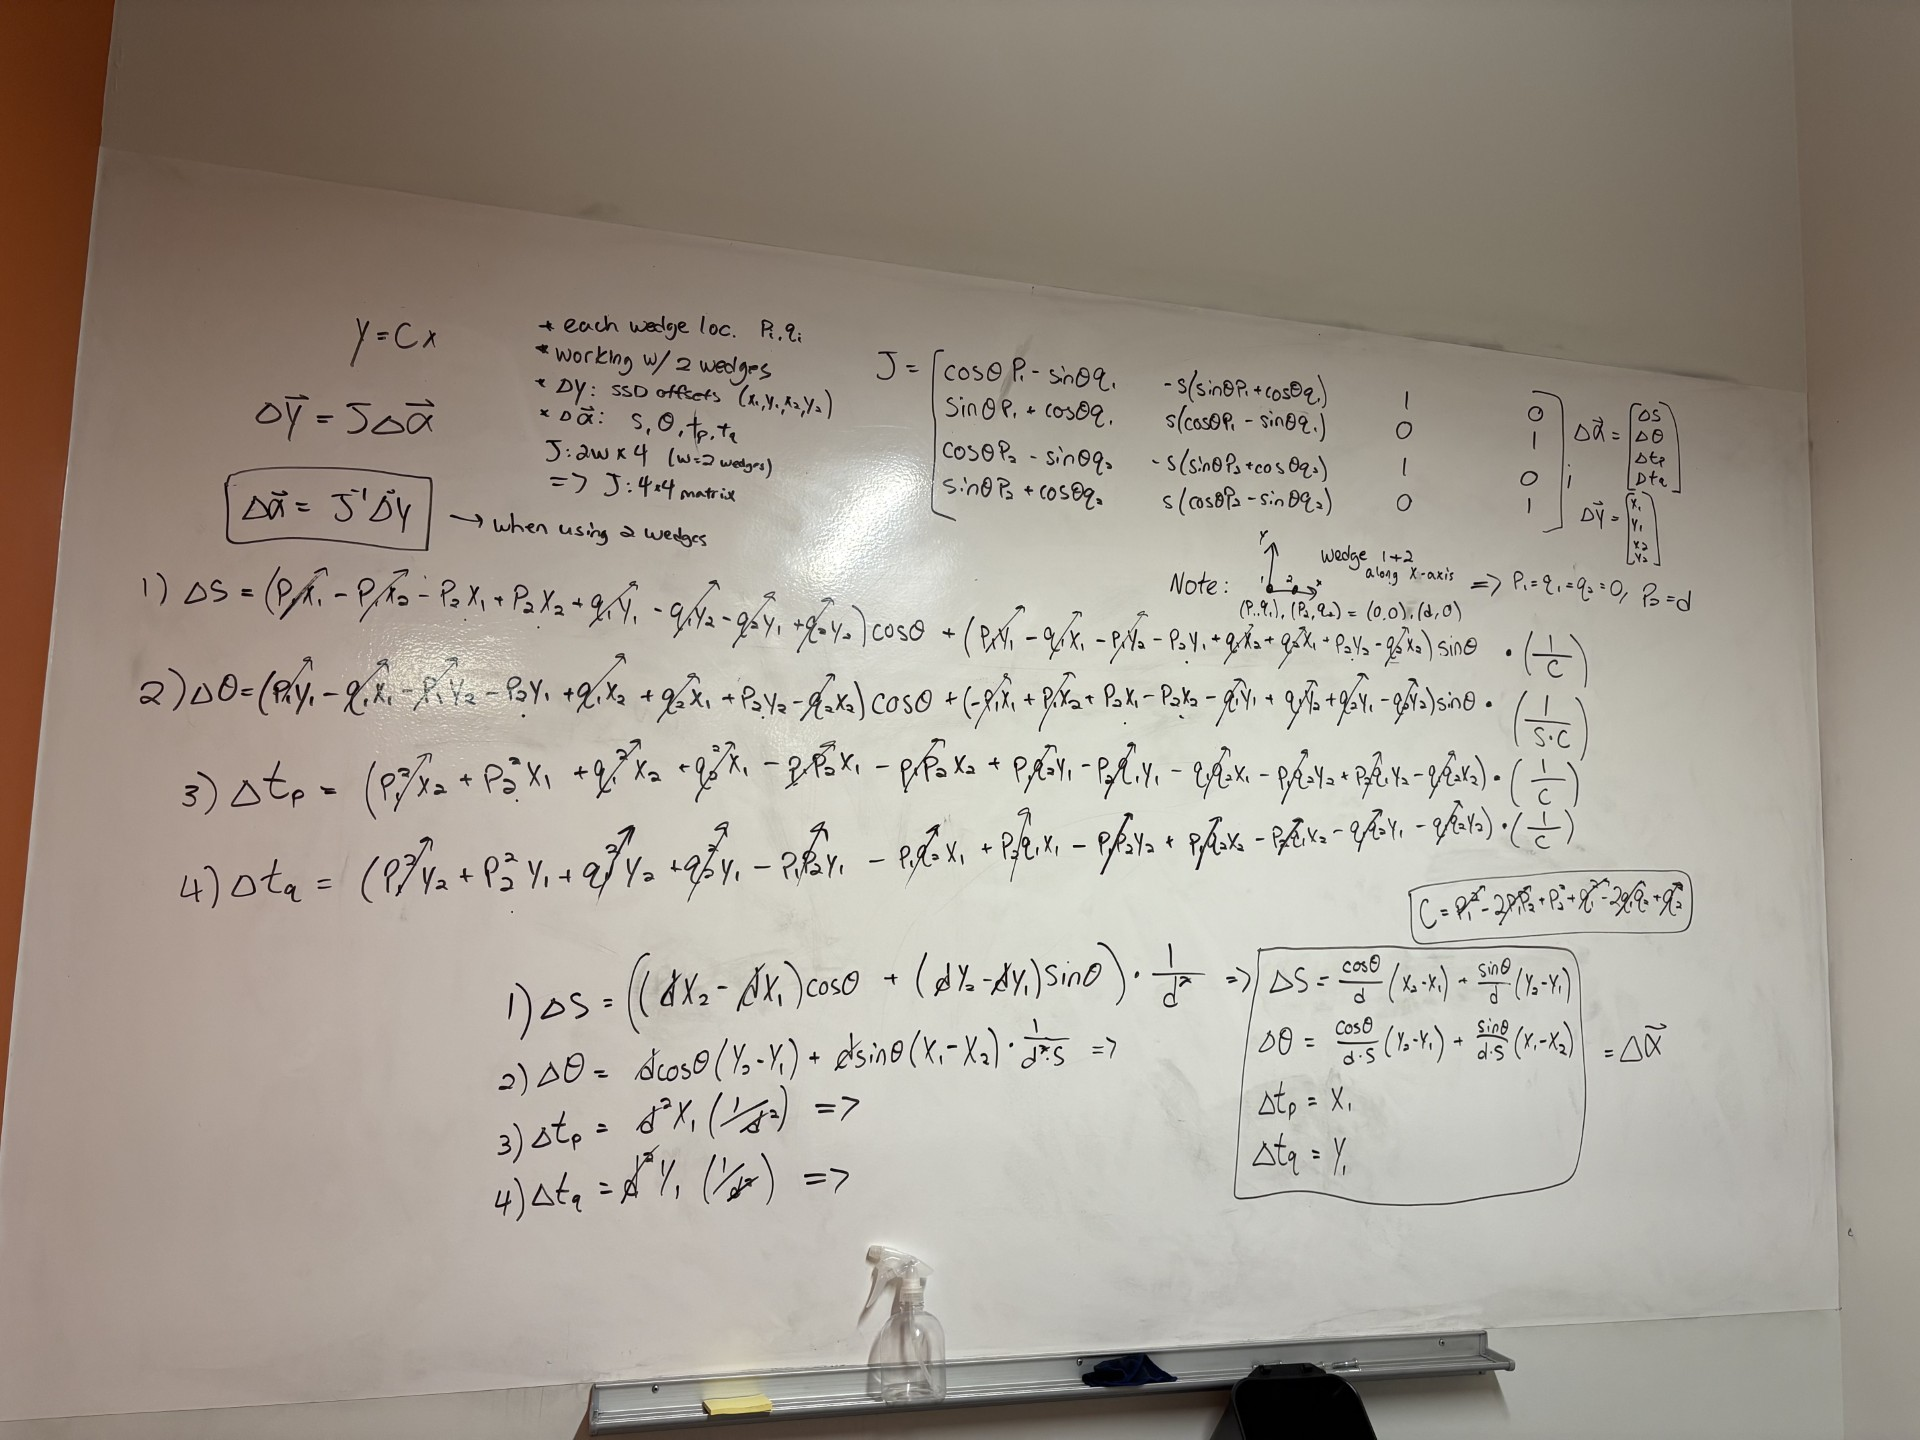 y = Cx
Δy⃗ = JΔα⃗
Δα⃗ = J⁻¹Δy⃗ → when using 2 wedges
* each wedge loc. Pᵢ, qᵢ
* working w/ 2 wedges
* ΔY: SSD offsets (x₁, y₁, x₂, y₂)
* Δα⃗: s, θ, tₚ, t_q
J: 2w × 4 (w=2 wedges)
=> J: 4×4 matrix
J = [cosθP₁ - sinθq₁   -s(sinθP₁ + cosθq₁)   1   0
sinθP₁ + cosθq₁   s(cosθP₁ - sinθq₁)   0   1
cosθP₂ - sinθq₂   -s(sinθP₂ + cosθq₂)   1   0
sinθP₂ + cosθq₂   s(cosθP₂ - sinθq₂)   0   1] ;
Δα⃗ = [Δs
Δθ
Δtₚ
Δt_q]
Δy⃗ = [x₁
y₁
x₂
y₂]
Note: Y 1 2 x wedge 1+2 along x-axis => P₁=q₁=q₂=0, P₂=d
(P₁,q₁), (P₂,q₂) = (0,0), (d,0)
1) ΔS = (P₁X₁ - P₁X₂ - P₂X₁ + P₂X₂ + q₁Y₁ - q₁Y₂ - q₂Y₁ + q₂Y₂)cosθ + (P₁Y₁ - q₁X₁ - P₁Y₂ - P₂Y₁ + q₁X₂ + q₂X₁ + P₂Y₂ - q₂X₂)sinθ · (1/C)
2) Δθ = (P₁Y₁ - q₁X₁ - P₁Y₂ - P₂Y₁ + q₁X₂ + q₂X₁ + P₂Y₂ - q₂X₂)cosθ + (-P₁X₁ + P₁X₂ + P₂X₁ - P₂X₂ - q₁Y₁ + q₁Y₂ + q₂Y₁ - q₂Y₂)sinθ · (1/S·C)
3) Δtₚ = (P₁²X₂ + P₂²X₁ + q₁²X₂ + q₂²X₁ - P₁P₂X₁ - P₁P₂X₂ + P₁q₂Y₁ - P₂q₁Y₁ - q₁q₂X₁ - P₁q₂Y₂ + P₂q₁Y₂ - q₁q₂X₂) · (1/C)
4) Δt_q = (P₁²Y₂ + P₂²Y₁ + q₁²Y₂ + q₂²Y₁ - P₁P₂Y₁ - P₁q₂X₁ + P₂q₁X₁ - P₁P₂Y₂ + P₁q₂X₂ - P₂q₁X₂ - q₁q₂Y₁ - q₁q₂Y₂) · (1/C)
C = P₁² - 2P₁P₂ + P₂² + q₁² - 2q₁q₂ + q₂²
1) ΔS = ((dX₂ - dX₁)cosθ + (dY₂ - dY₁)sinθ) · 1/d² =>
2) Δθ = dcosθ(Y₂-Y₁) + dsinθ(X₁-X₂) · 1/d²·S =>
3) Δtₚ = d²X₁(1/d²) =>
4) Δt_q = d²Y₁(1/d²) =>
ΔS = cosθ/d (X₂-X₁) + sinθ/d (Y₂-Y₁)
Δθ = cosθ/d·S (Y₂-Y₁) + sinθ/d·S (X₁-X₂) = Δα⃗
Δtₚ = X₁
Δt_q = Y₁